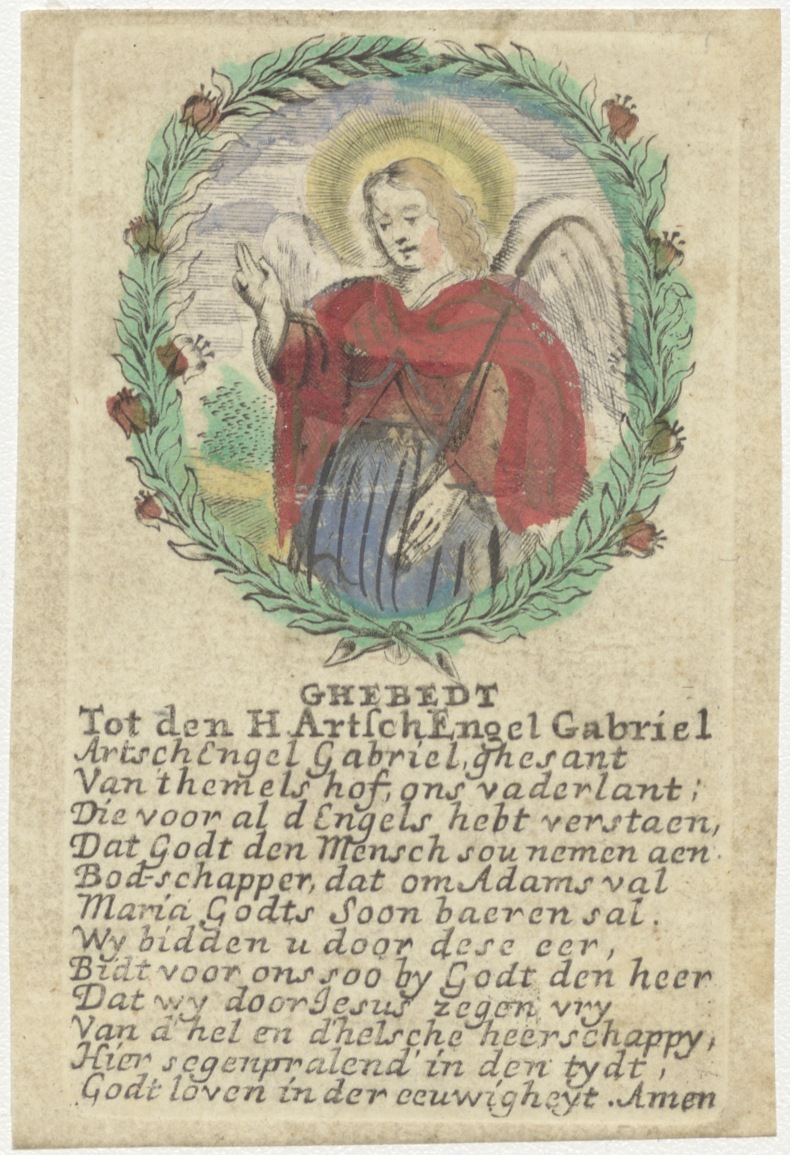 GHEBEDT
Tot den H ArtſchEngel Gabriel
ArtschEngel Gabriel, ghesant
Van themels hof, ons vaderlant;
Die voor al d Engels hebt verstaen,
Dat Godt den Mensch sou nemen aen.
Bod-schapper, dat om Adams val
Maria Godts Soon baeren sal.
Wy bidden u door dese eer,
Bidt voor ons soo by Godt den heer
Dat wy door Jesus zegen vry
Van d'hel en d'helsche heerschappy,
Hier segenpralend' in den tydt,
Godt loven in der eeuwigheyt. Amen